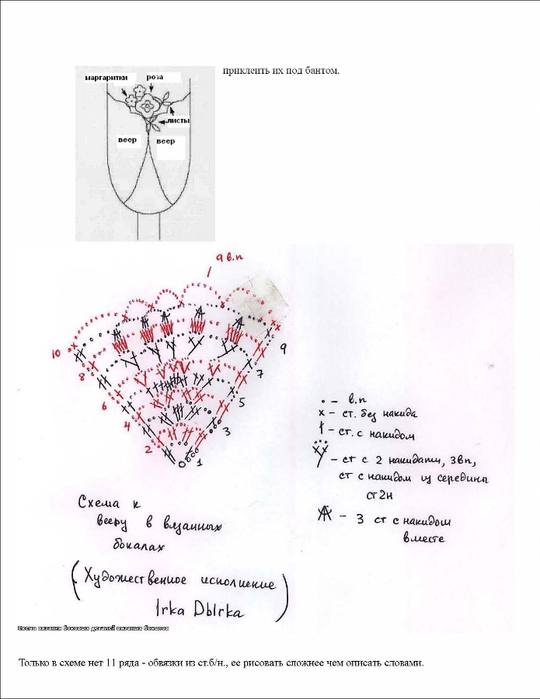 приклеить их под бантом.
маргаритки роза
листы
веер веер
9 в.п
10
9
8
7
6
5
4
3
2
1
. - в.п
x - ст. без накида
ст. с накидом
- ст с 2 накидами, 3вп,
ст с накидом из середины
ст2н
- 3 ст с накидом
вместе
Схема к
вееру в вязанных
бокалах
(Художественное исполнение
Irka Dblrka)
Схема вязания боковых деталей вязаных бокалов
Только в схеме нет 11 ряда - обвязки из ст.б/н., ее рисовать сложнее чем описать словами.